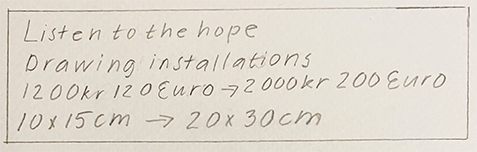 Listen to the hope
Drawing installations
1200kr 120 Euro → 2000kr 200 Euro
10x15cm → 20x30cm